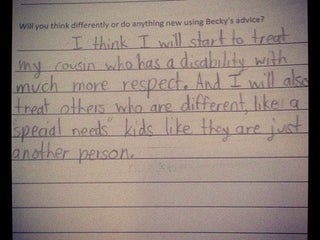 Will you think differently or do anything new using Becky's advice?
I think I will start to treat
my cousin who has a disability with
much more respect. And I will also
treat others who are different, like "a
special needs" kids like they are just
another person.